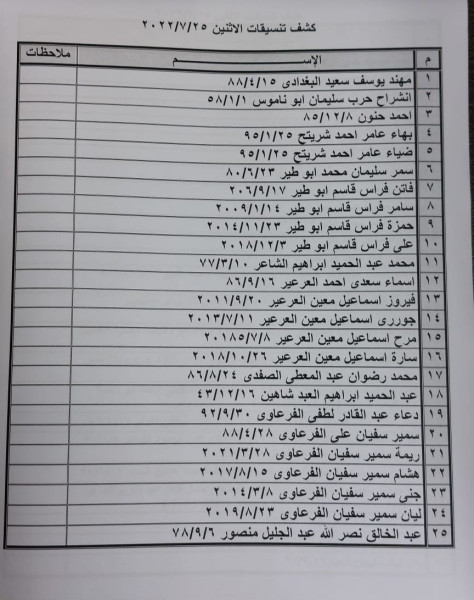 كشف تنسيقات الاثنين ٢٠٢٢/٧/٢٥
م الإســـم ملاحظات
١ مهند يوسف سعيد البغدادى ٨٨/٤/١٥
٢ انشراح حرب سليمان ابو ناموس ٥٨/١/١
٣ احمد حنون ٨٥/١٢/٨
٤ بهاء عامر احمد شريتح ٩٥/١/٢٥
٥ ضياء عامر احمد شريتح ٩٥/١/٢٥
٦ سمر سليمان محمد ابو طير ٨٠/٦/٢٣
٧ فاتن فراس قاسم ابو طير ٢٠٦/٩/١٧
٨ سامر فراس قاسم ابو طير ٢٠٠٩/١/١٤
٩ حمزة فراس قاسم ابو طير ٢٠١٤/١١/٢٣
١٠ على فراس قاسم ابو طير ٢٠١٨/١٢/٣
١١ محمد عبد الحميد ابراهيم الشاعر ٧٧/٣/١٠
١٢ اسماء سعدى احمد العرعير ٨٦/٩/١٦
١٣ فيروز اسماعيل معين العرعير ٢٠١١/٩/٢٠
١٤ جورى اسماعيل معين العرعير ٢٠١٣/٧/١١
١٥ مرح اسماعيل معين العرعير ٢٠١٨٥/٧/٨
١٦ سارة اسماعيل معين العرعير ٢٠١٨/١٠/٢٦
١٧ محمد رضوان عبد المعطى الصفدى ٨٦/٨/٢٤
١٨ عبد الحميد ابراهيم العبد شاهين ٤٣/١٢/١٦
١٩ دعاء عبد القادر لطفى الفرعاوى ٩٢/٩/٣٠
٢٠ سمير سفيان على الفرعاوى ٨٨/٤/٢٨
٢١ ريمة سمير سفيان الفرعاوى ٢٠٢١/٣/٢٨
٢٢ هشام سمير سفيان الفرعاوى ٢٠١٧/٨/١٥
٢٣ جنى سمير سفيان الفرعاوى ٢٠١٤/٣/٨
٢٤ ليان سمير سفيان الفرعاوى ٢٠١٩/٨/٢٣
٢٥ عبد الخالق نصر الله عبد الجليل منصور ٧٨/٩/٦